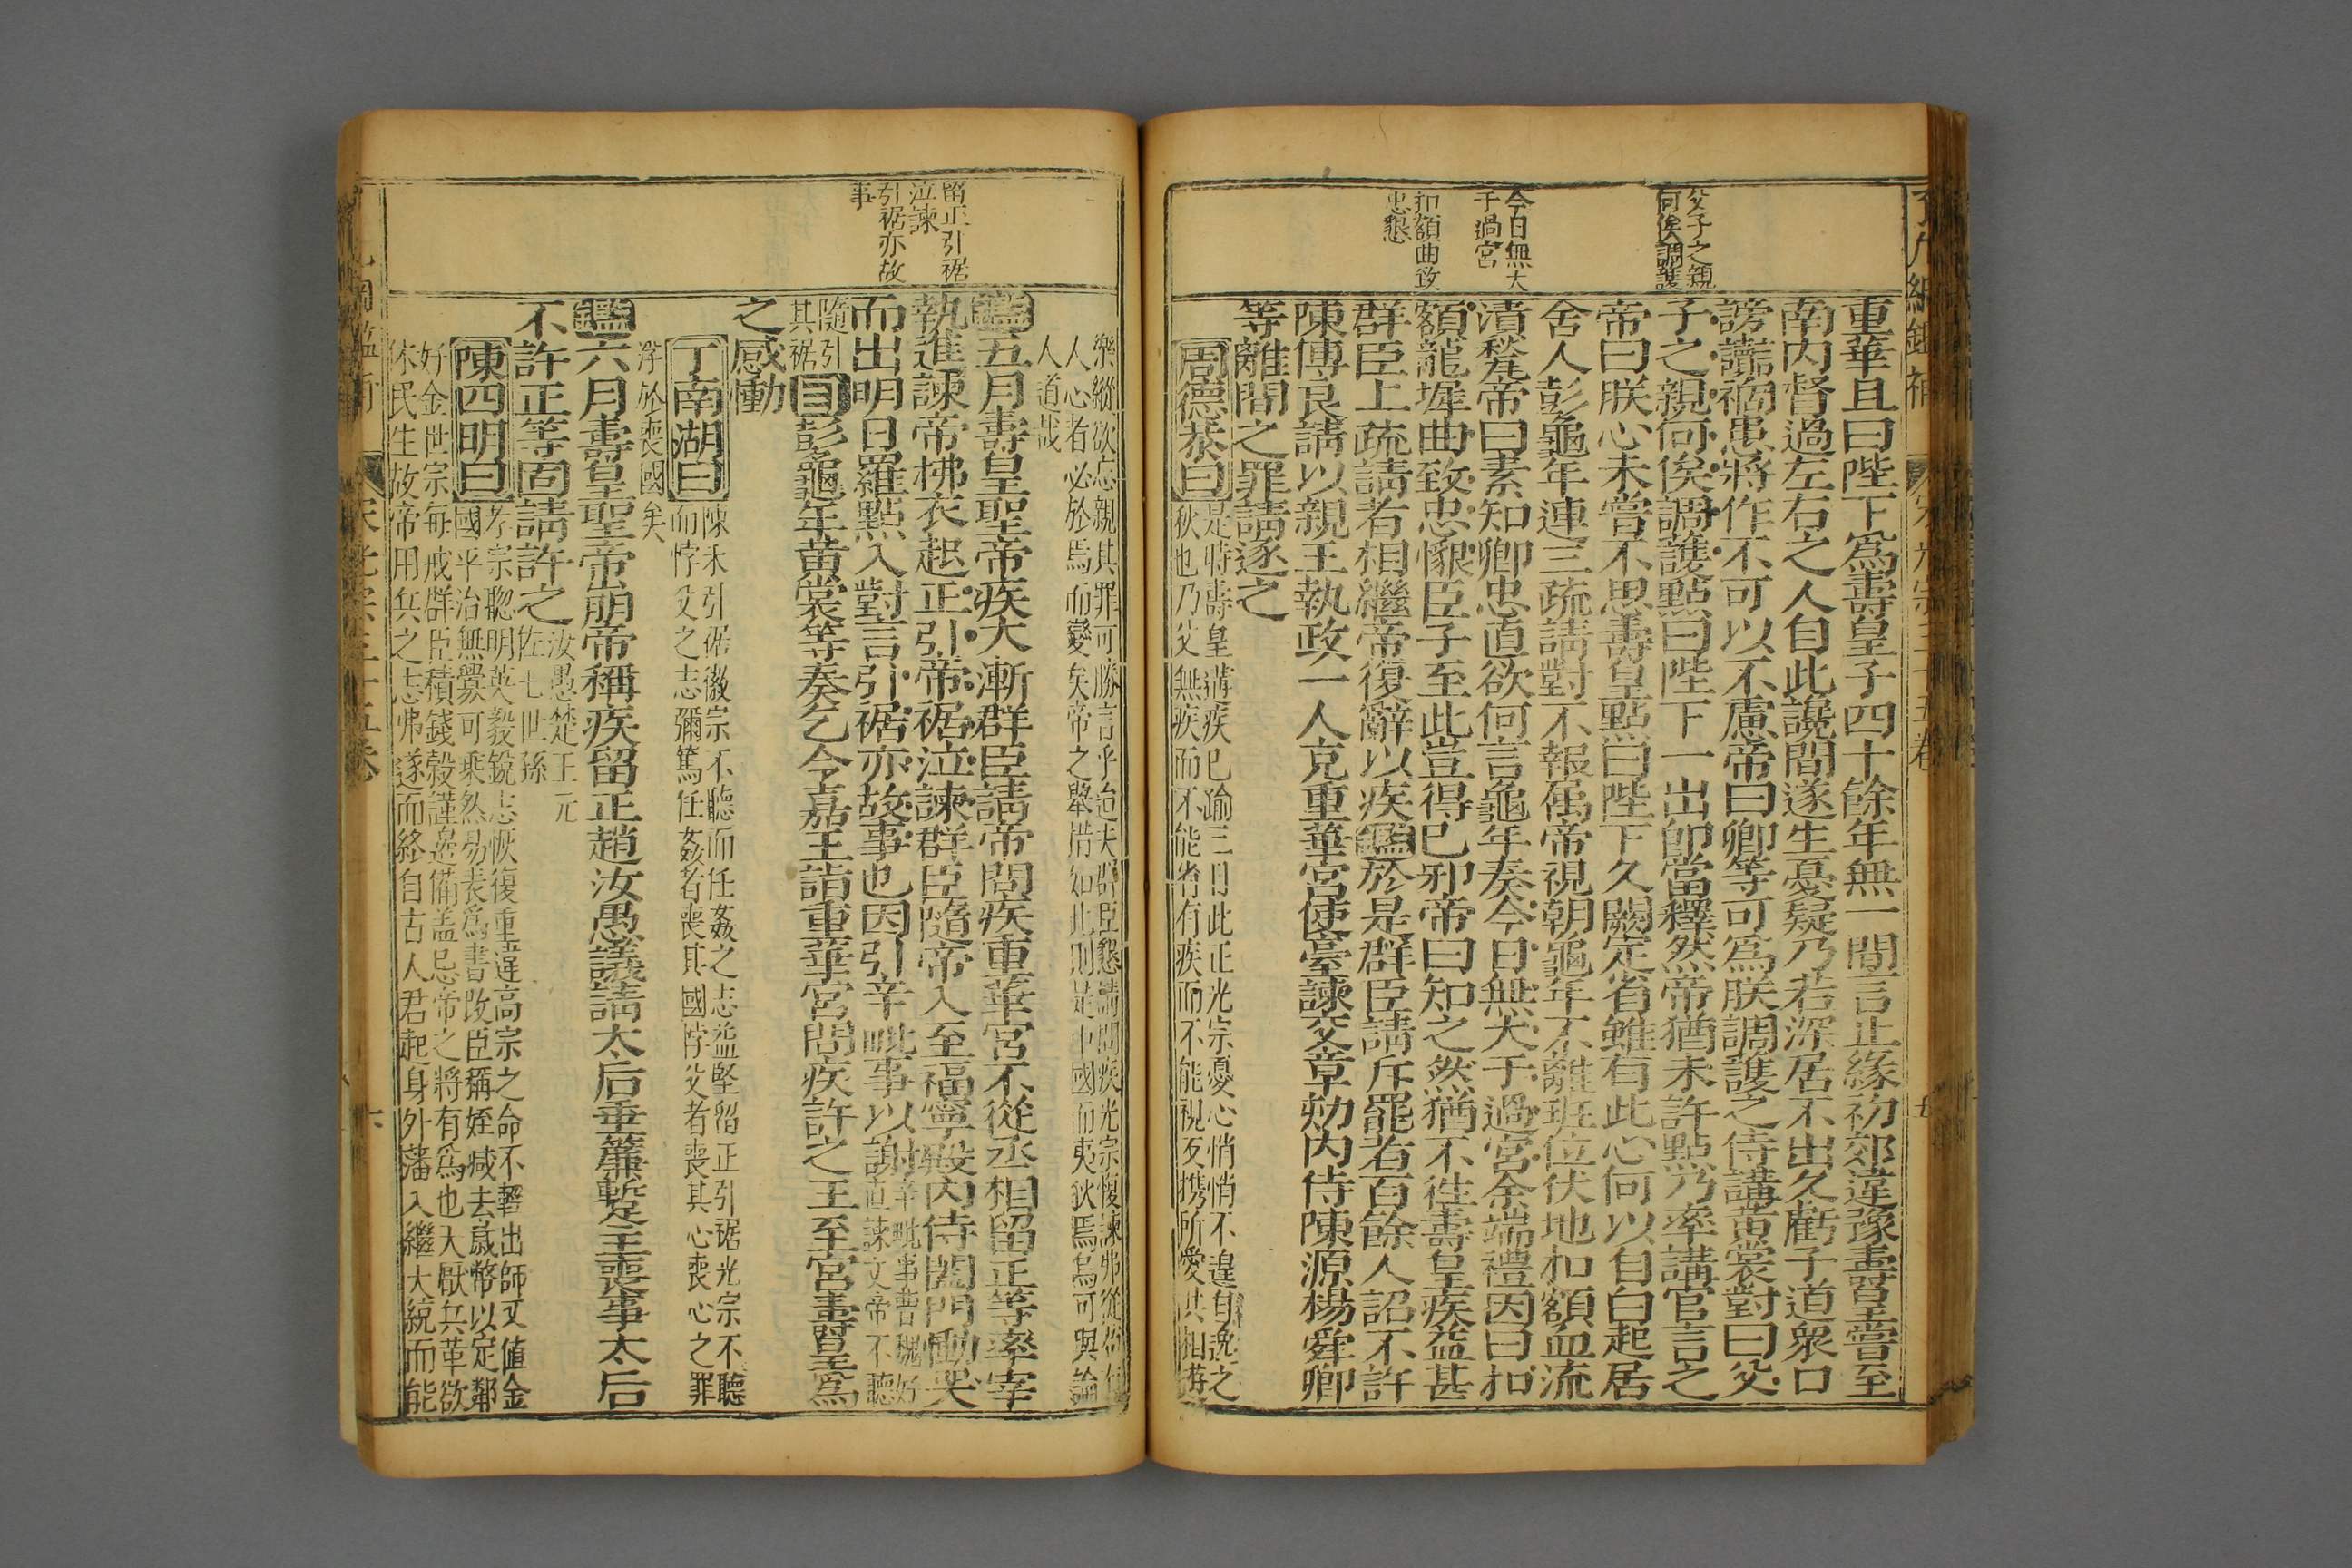 父子之親
何俟調護
今日無大
于過宮
扣額曲致
忠懇
重華且曰陛下爲壽皇子四十餘年無一間言止緣初郊違豫壽皇嘗至
南内督過左右之人自此讒間遂生憂疑乃若深居不出久虧子道衆口
謗讟禍患將作不可以不慮帝曰卿等可爲朕調護之侍講黄裳對曰父
子之親何俟調護點曰陛下一出卽當釋然帝猶未許點乃率講官言之
帝曰朕心未嘗不思壽皇點曰陛下久闕定省雖有此心何以自白起居
舍人彭龜年連三疏請對不報屬帝視朝龜年不離班位伏地扣額血流
漬甃帝曰素知卿忠直欲何言龜年奏今日無大于過宮余端禮因曰扣
額龍墀曲致忠懇臣子至此豈得已邪帝曰知之然猶不往壽皇疾益甚
群臣上疏請者相繼帝復辭以疾鑑於是群臣請斥罷者百餘人詔不許
陳傅良請以親王執政一人充重華宮使臺諫交章劾内侍陳源楊舜卿
等離間之罪請逐之
周德恭曰是時壽皇遘疾已踰三月此正光宗憂心悄悄不遑自逸之
狄也乃父無疾而不能省有疾而不能視反携所愛其相游
留正引裾
泣諫
引裾亦故
事
樂縱欲忘親其罪可勝言乎迨夫群臣懇請問疾光宗愎諫弗從
人心者必於焉而變矣帝之舉措如此則是中國而夷狄焉烏可與論
人道哉
鑑五月壽皇聖帝疾大漸群臣請帝問疾重華宮不從丞相留正等率宰
執進諫帝拂衣起正引帝裾泣諫群臣隨帝入至福寧殿内侍闔門慟哭
而出明日羅點入對言引裾亦故事也因引辛毗事以謝辛毗事曹魏好
直諫文帝不聽
隨引
其裾目彭龜年黄裳等奏乞令嘉王詣重華宮問疾許之王至宮壽皇爲
之感動
丁南湖曰陳禾引裾徽宗不聽而任姦之志益堅留正引裾光宗不聽
而悖父之志彌篤任姦者喪其國悖父者喪其心喪心之罪
浮於喪國矣
鑑六月壽皇聖帝崩帝稱疾留正趙汝愚議請太后垂簾暫主喪事太后
不許正等固請許之汝愚楚王元
佐七世孫
陳四明曰孝宗聰明英毅銳志恢復重違高宗之命不輕出師又値金
國平治無釁可乘然易表爲書改臣稱姪減去歲幣以定鄰
好金世宗每戒群臣積錢穀謹邊備盖忌帝之將有爲也天厭兵革欲
休民生故帝用兵之志弗遂而終自古人君起身外藩入繼大統而能